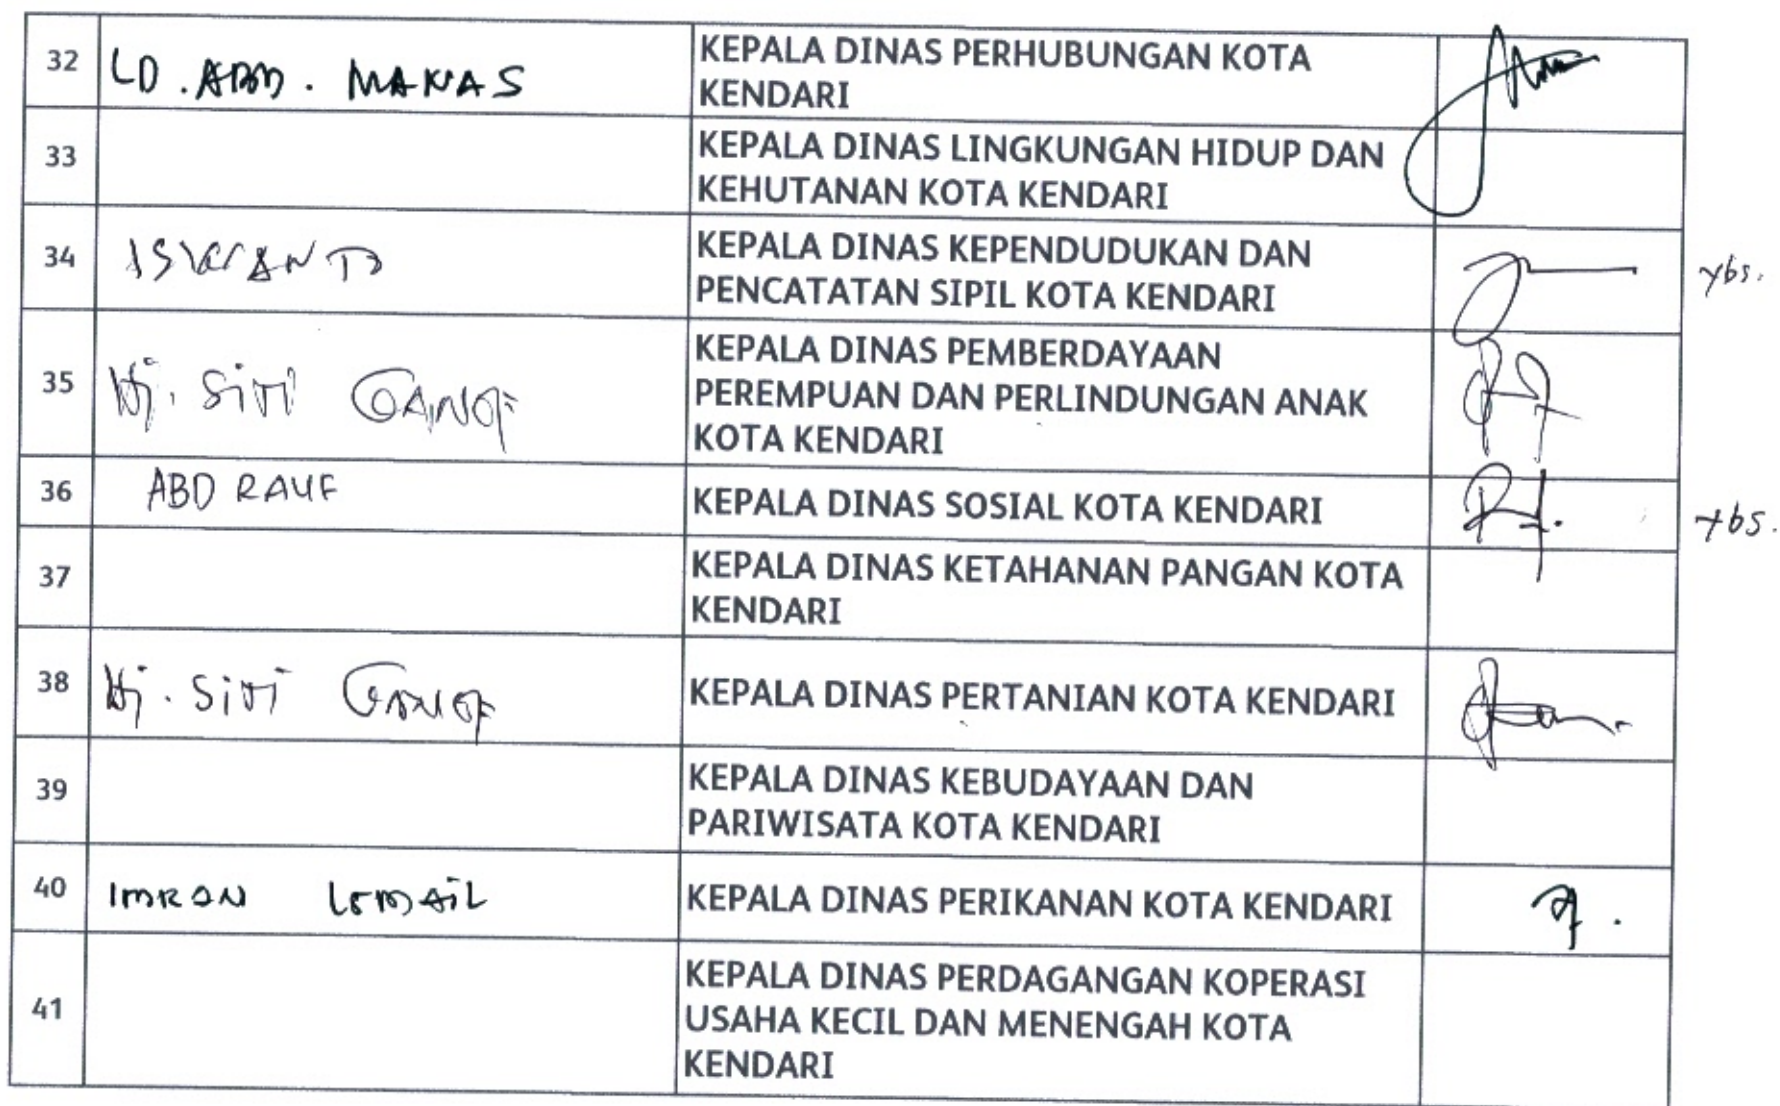 32 LD. ABD. MANAS KEPALA DINAS PERHUBUNGAN KOTA
KENDARI
33 KEPALA DINAS LINGKUNGAN HIDUP DAN
KEHUTANAN KOTA KENDARI
34 ISWANTO KEPALA DINAS KEPENDUDUKAN DAN
PENCATATAN SIPIL KOTA KENDARI ybs.
35 Hj. SiTi KEPALA DINAS PEMBERDAYAAN
PEREMPUAN DAN PERLINDUNGAN ANAK
KOTA KENDARI
36 ABD RAUF KEPALA DINAS SOSIAL KOTA KENDARI ybs.
37 KEPALA DINAS KETAHANAN PANGAN KOTA
KENDARI
38 Hj. SiTi KEPALA DINAS PERTANIAN KOTA KENDARI
39 KEPALA DINAS KEBUDAYAAN DAN
PARIWISATA KOTA KENDARI
40 IMRAN ISMAiL KEPALA DINAS PERIKANAN KOTA KENDARI
41 KEPALA DINAS PERDAGANGAN KOPERASI
USAHA KECIL DAN MENENGAH KOTA
KENDARI